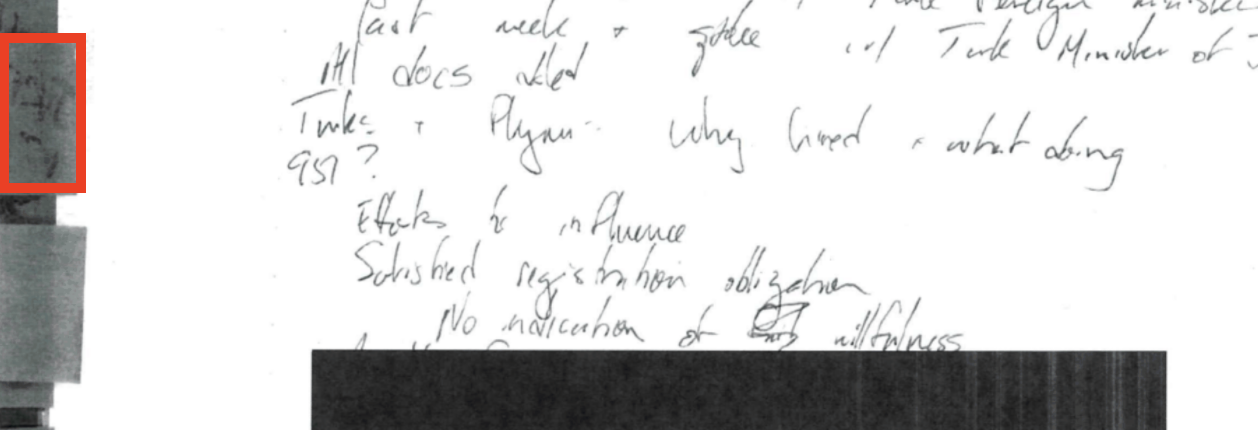 last week + spoke w/ Turk Minister of J
All docs dated
Turks + Flynn - why hired + what doing
951?
Efforts to influence
Satisfied registration obligation
No indication of willfulness